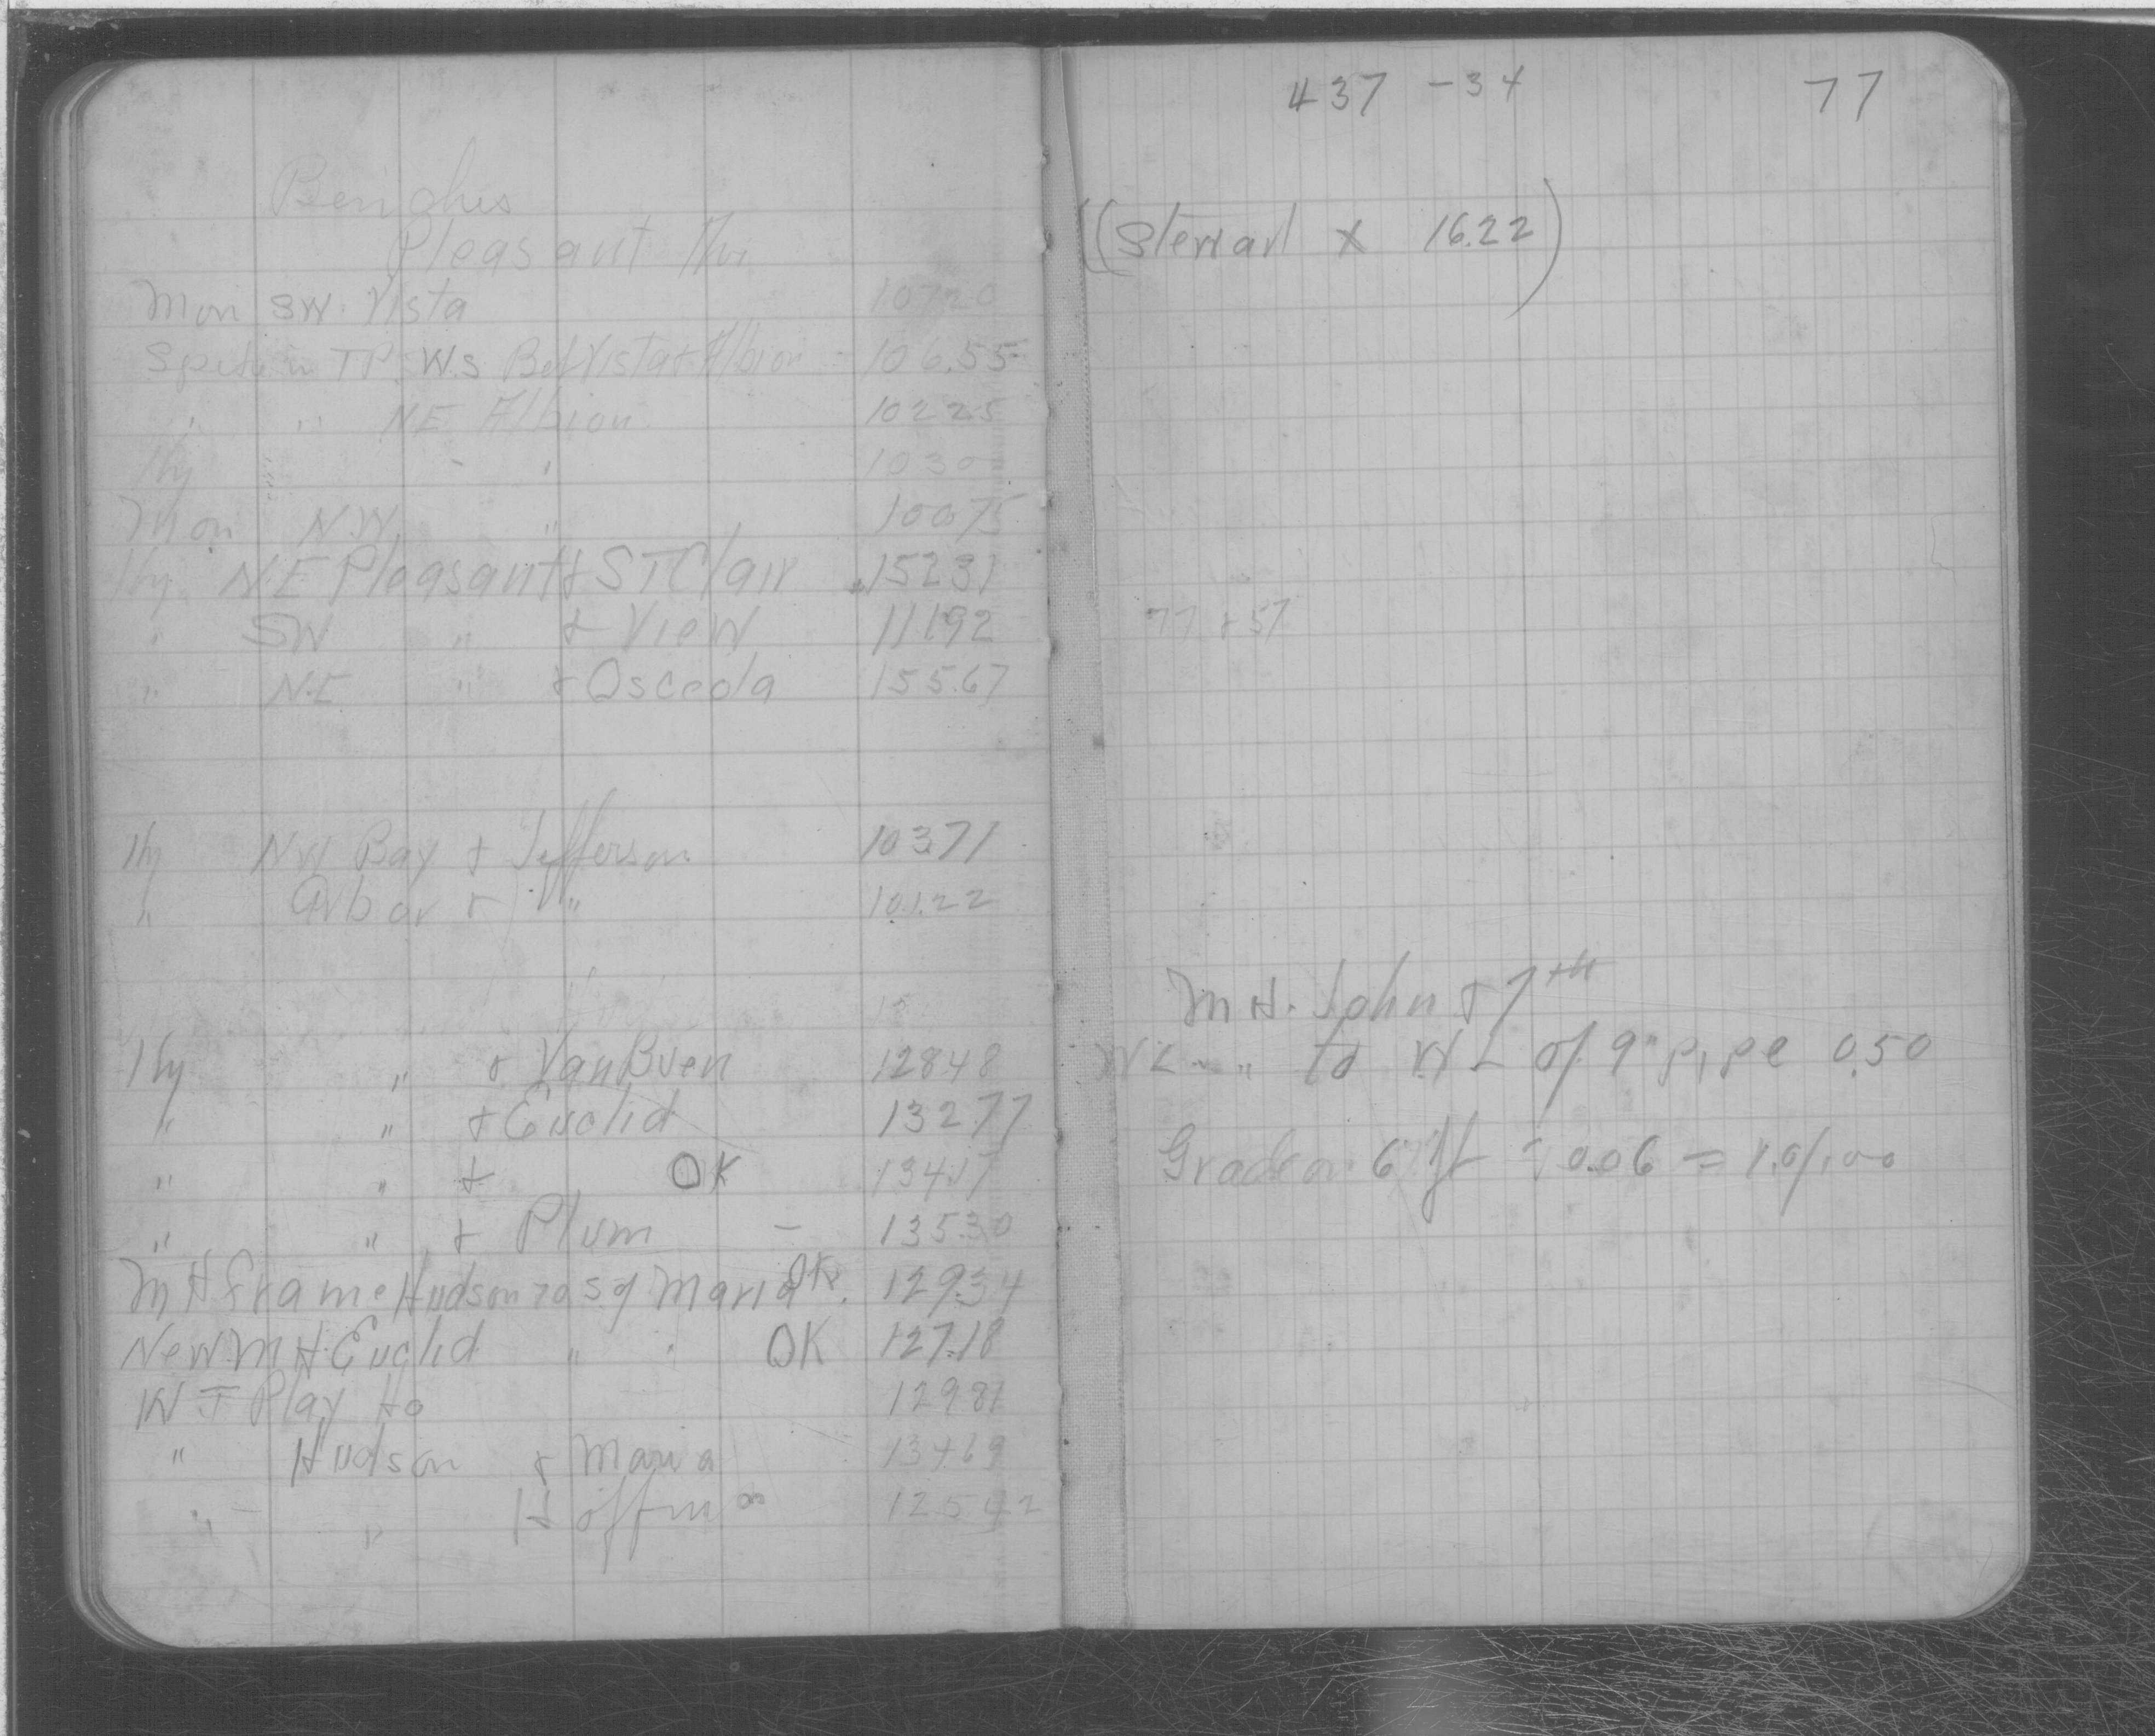 Benchs
Pleasant Av.
Mon SW. Vista 107.20
Spike in TP. W.S Bet Vista & Albion 106.55
" " N.E Albion 102.25
Hy " - " 103.0
Mon N.W " 100.75
Hy. N.E Pleasant & ST Clair 152.31
" SW " & View 111.92
" N.E " & Osceola 155.67
Hy NW Bay & Jefferson 103.71
" Arbor & " 101.22
Hy " & Van Buren 128.48
" " & Euclid 132.77
" " & OK 134.17
" " & Plum - 135.30
MH frame Hudson Maria OK. 129.34
New M H. Euclid " " OK 127.18
Play Ho 129.81
" Hudson & Maria 134.69
" " Hoffman 125.42
437 - 34 77
((Stewart x 16.22)
77 + 57
M H. John & 7th
WL " to WL of 9" pipe 0.50
Grade on 6 ft 0.06 = 1.0/100